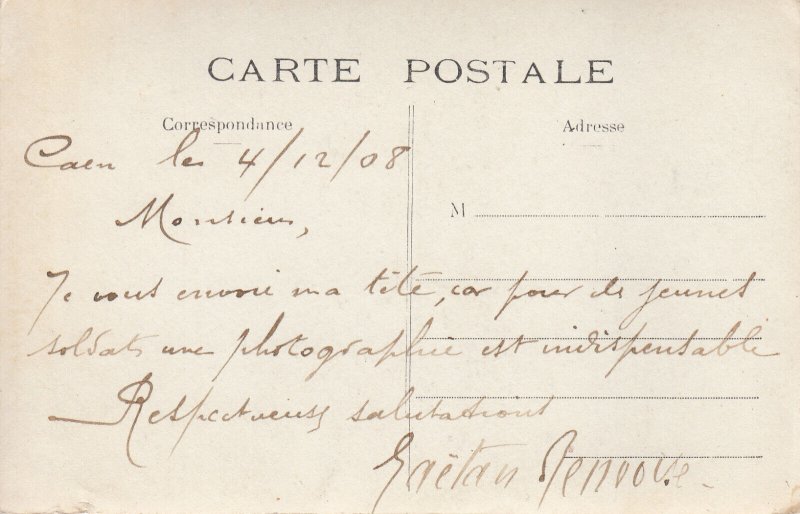 CARTE POSTALE
Correspondance
Adresse
Caen les 4/12/08
Monsieur,
M
Je vous envoie ma tête, car pour de jeunes
soldats une photographie est indispensable
Respectueuses salutations
Gaëtan